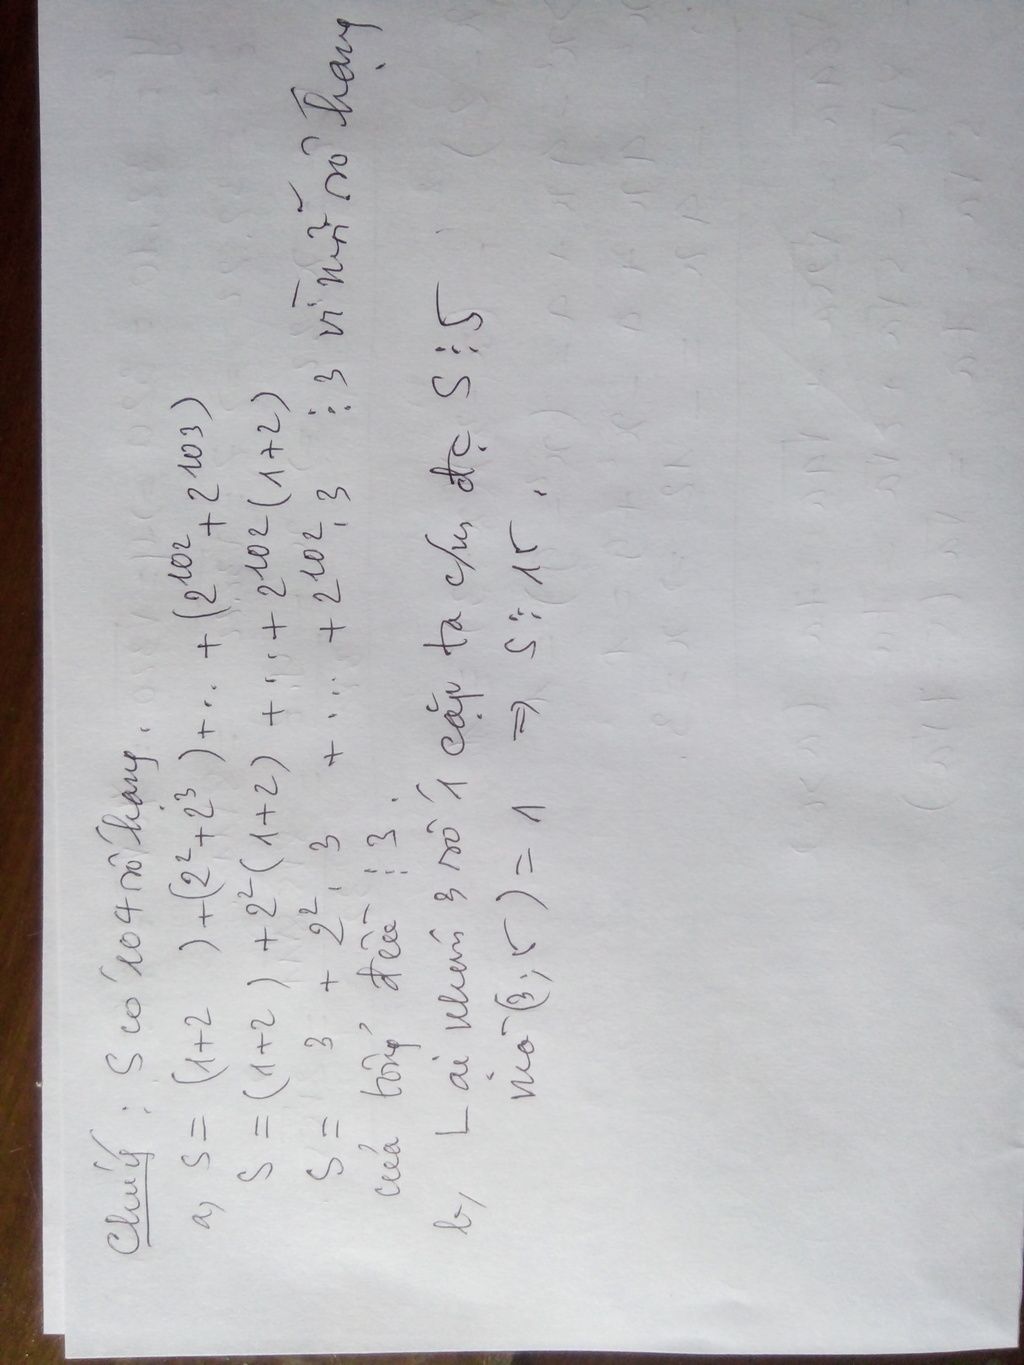 Chú ý: S có 104 số hạng.
a, S = (1+2) + (2² + 2³) + .. + (2¹⁰² + 2¹⁰³)
S = (1+2) + 2² (1+2) + ... + 2¹⁰² (1+2)
S = 3 + 2² . 3 + ... + 2¹⁰² . 3 ⋮ 3 vì mỗi số hạng
của tổng đều ⋮ 3 .
b, Lại nhóm 3 số 1 cặp ta c/m đc S ⋮ 5
mà (3 ; 5) = 1 ⇒ S ⋮ 15 .